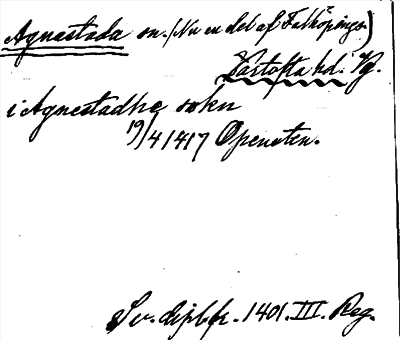 Agnestada sn. (Nu en del af Falköpings.)
Vartofta hd. Vg.
i Agnestadhe sokn
19/4 1417 Opensten.
Sv. dipl. fr. 1401. III. Reg.